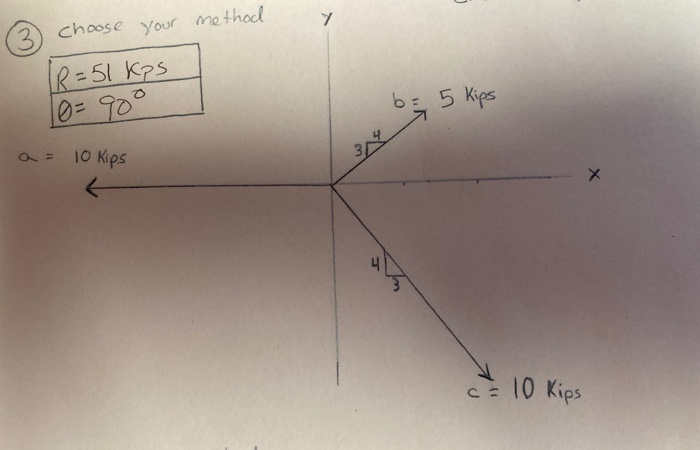 ③ Choose your method
R = 51 Kps
θ = 90°
a = 10 Kips
y
b = 5 Kips
3 4
x
4
3
c = 10 Kips